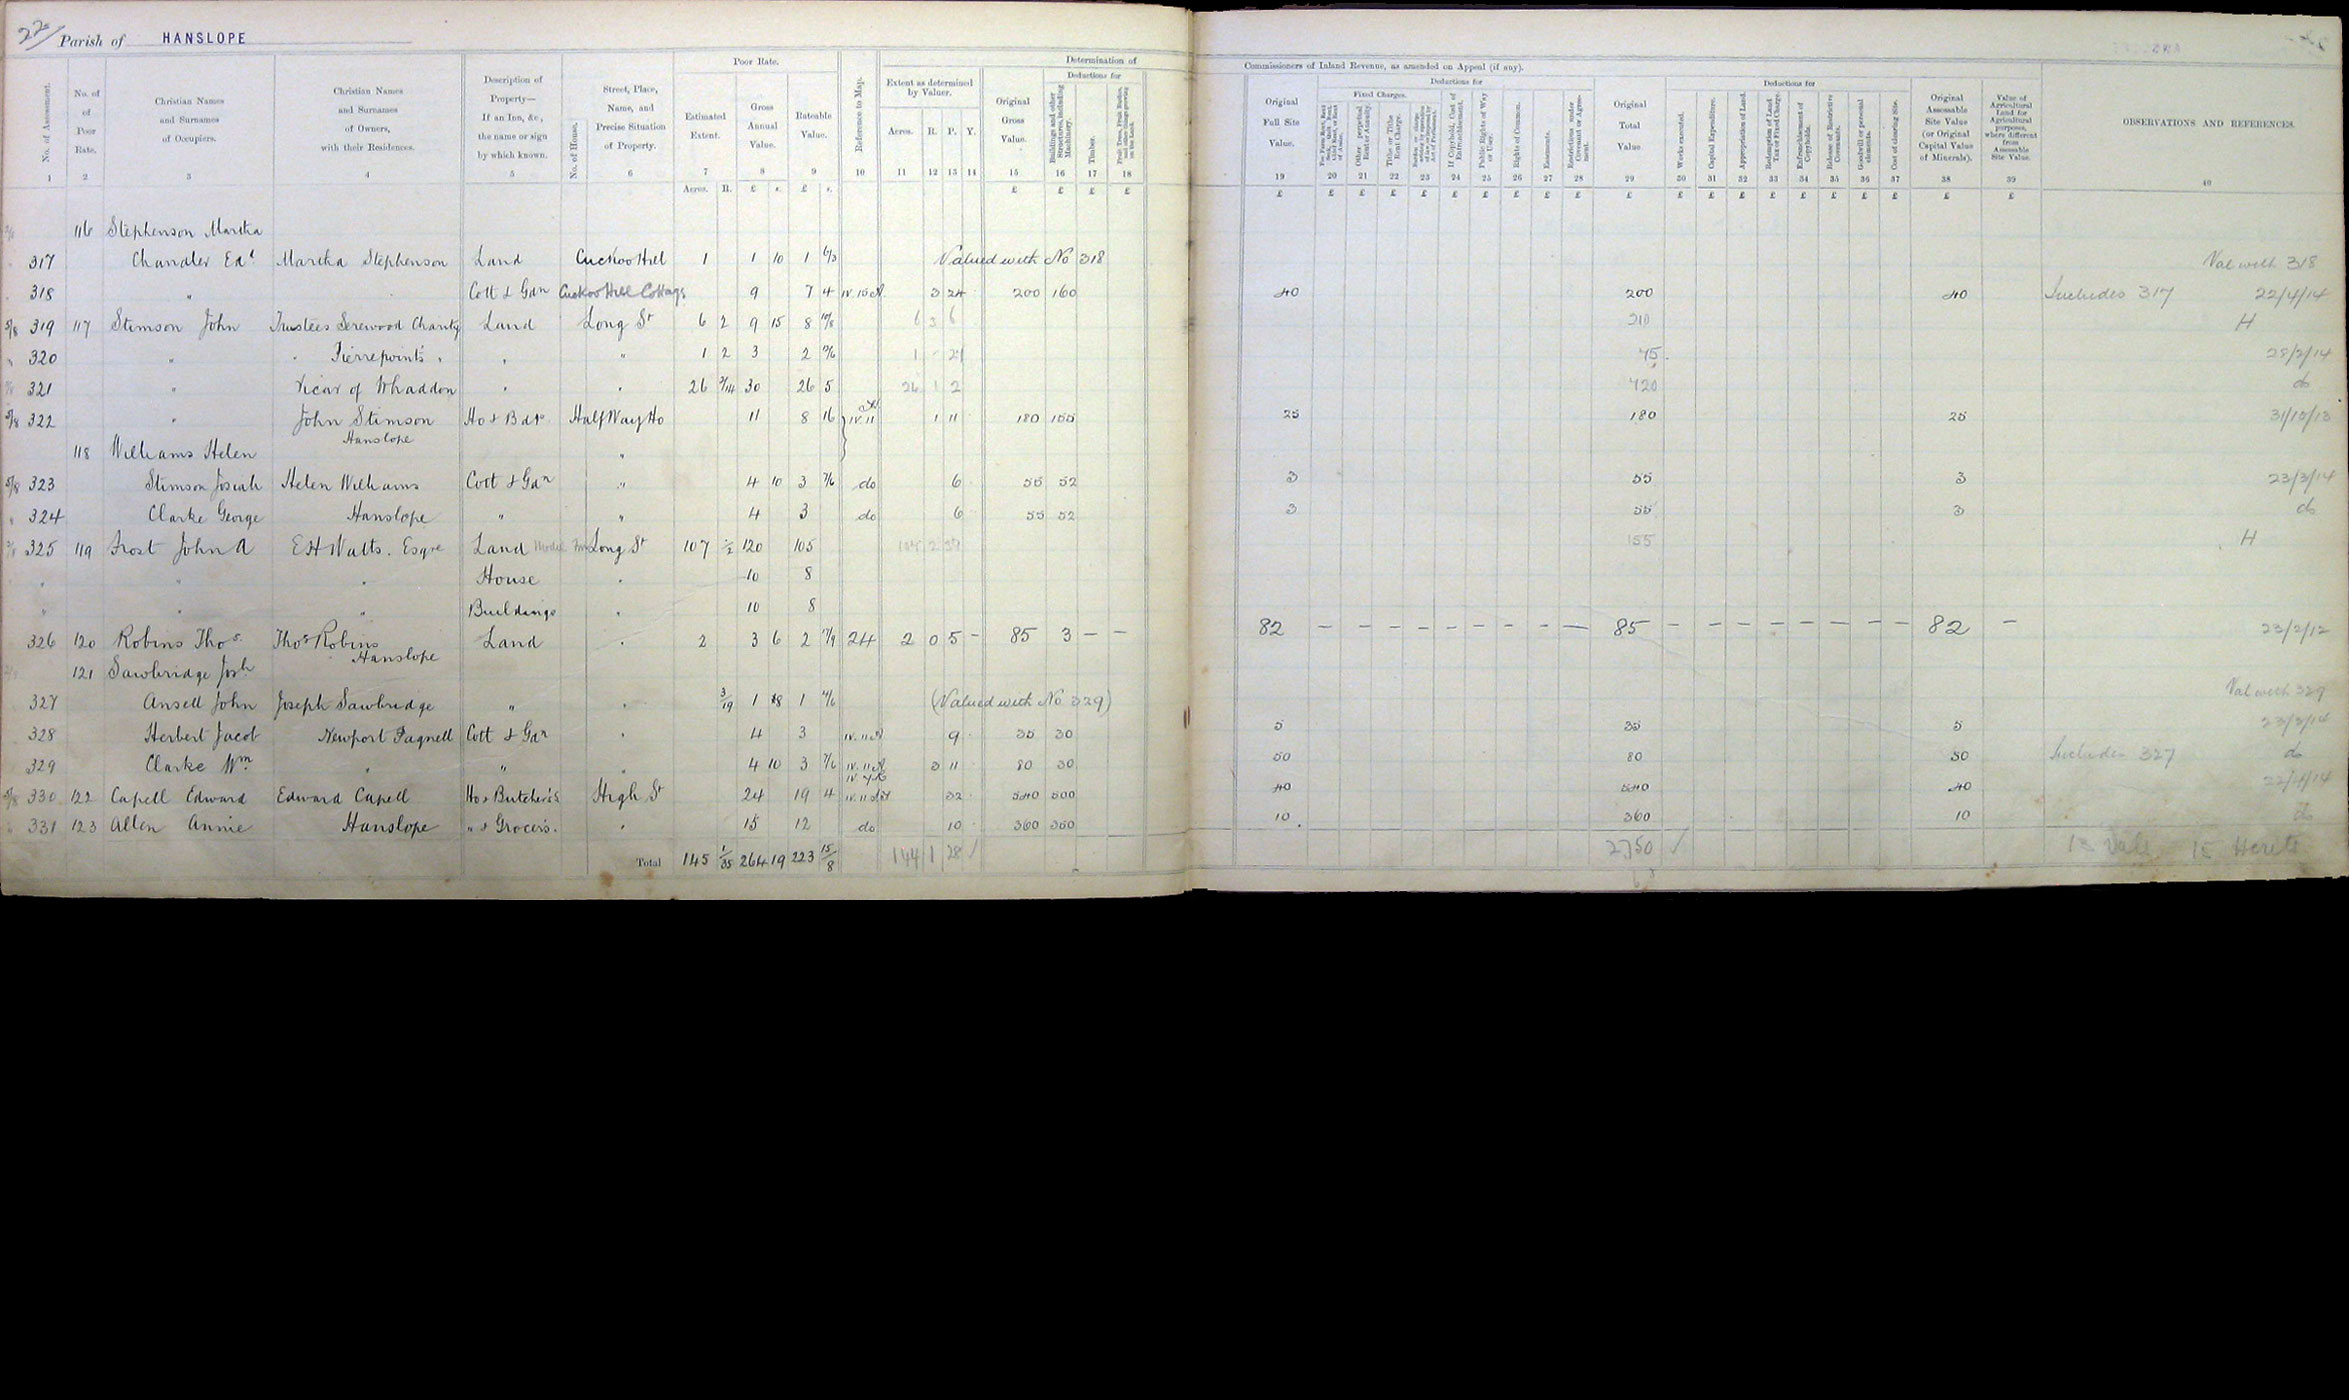 22/ Parish of HANSLOPE
Poor Rate. Determination of Commissioners of Inland Revenue, as amended on Appeal (if any).
No. of Assessment. 1
No. of Poor Rate. 2
Christian Names and Surnames of Occupiers. 3
Christian Names and Surnames of Owners, with their Residences. 4
Description of Property— If an Inn, &c., the name or sign by which known. 5
No. of House.
Street, Place, Name, and Precise Situation of Property. 6
Estimated Extent. 7 Acres. R.
Gross Annual Value. 8 £ s.
Rateable Value. 9 £ s.
Reference to Map. 10
Extent as determined by Valuer. Acres. 11 R. 12 P. 13 Y. 14
Original Gross Value. 15 £
Deductions for
Buildings and other Structures, including Machinery. 16 £
Timber. 17 £
Fruit Trees, Fruit Bushes, and other things growing on the Land. 18 £
Original Full Site Value. 19 £
Deductions for
Fixed Charges.
20 £
Other perpetual Rent or Annuity. 21 £
Tithe or Tithe Rent Charge. 22 £
23 £
If Copyhold, Cost of Enfranchisement. 24 £
Public Rights of Way or User. 25 £
Rights of Common. 26 £
Easements. 27 £
Restrictions under Covenant or Agreement. 28 £
Original Total Value 29 £
Deductions for
Works executed. 30 £
Capital Expenditure. 31 £
Appropriation of Land. 32 £
Redemption of Land Tax or Fixed Charge. 33 £
Enfranchisement of Copyholds. 34 £
Release of Restrictive Covenants. 35 £
Goodwill or personal elements. 36 £
Cost of clearing Site. 37 £
Original Assessable Site Value (or Original Capital Value of Minerals). 38 £
Value of Agricultural Land for Agricultural purposes, where different from Assessable Site Value. 39 £
OBSERVATIONS AND REFERENCES. 40
116 Stephenson Martha
317 Chandler Edd Martha Stephenson Land Cuckoo Hill 1 1 10 1 6/3 Valued with No 318 Val with 318
318 " Cott & Gdn Cuckoo Hill Cottage 9 7 4 IV. 15 3 24 200 160 40 200 40 Includes 317 22/4/14
5/8 319 117 Stimson John Trustees Serewood Charity Land Long St 6 2 9 15 8 10/8 6 3 6 210 H
320 " " Pierrepoint's " " " 1 2 3 2 1 - 21 75 28/2/14
321 " Vicar of Whaddon " " 26 3/14 30 26 5 26 1 2 720 do
5/8 322 " John Stimson Ho & Bdgs Half Way Ho 11 8 16 IV. 11 1 11 180 155 25 180 25 31/10/13
Hanslope
118 Williams Helen "
5/8 323 Stimson Josiah Helen Williams Cott & Gdn " 4 10 3 7/6 do 6 55 52 3 55 3 23/3/14
" 324 Clarke George Hanslope " " 4 3 do 6 55 52 3 55 3 do
325 119 Frost John A E H Watts. Esqre Land Long St 107 1/2 120 105 155 H
" " " House " 10 8
" " " Buildings " 10 8
326 120 Robins Thos. Thos Robins Land " 2 3 6 2 24 2 0 5 - 85 3 - - 82 - - - - - - - - - 85 - - - - - - - - 82 - 23/2/12
Hanslope
121 Sawbridge Josh
327 Ansell John Joseph Sawbridge " " 3/19 1 18 1 (Valued with No 329) Val with 329
328 Herbert Jacob Newport Pagnell Cott & Gdn " 4 3 IV. 11 9 35 30 5 35 5 23/3/14
329 Clarke Wm " " " 4 10 3 7/6 IV. 11 3 11 80 30 50 80 50 Includes 327 do
5/8 330 122 Capell Edward Edward Capell Ho & Butchers High St 24 19 4 IV. 11 32 540 500 40 540 40 22/4/14
331 123 Allen Annie Hanslope " & Grocers. " 15 12 do 10 360 350 10 360 10 do
Total 145 1/35 264 19 223 15/8 144 1 28 / 2750 /